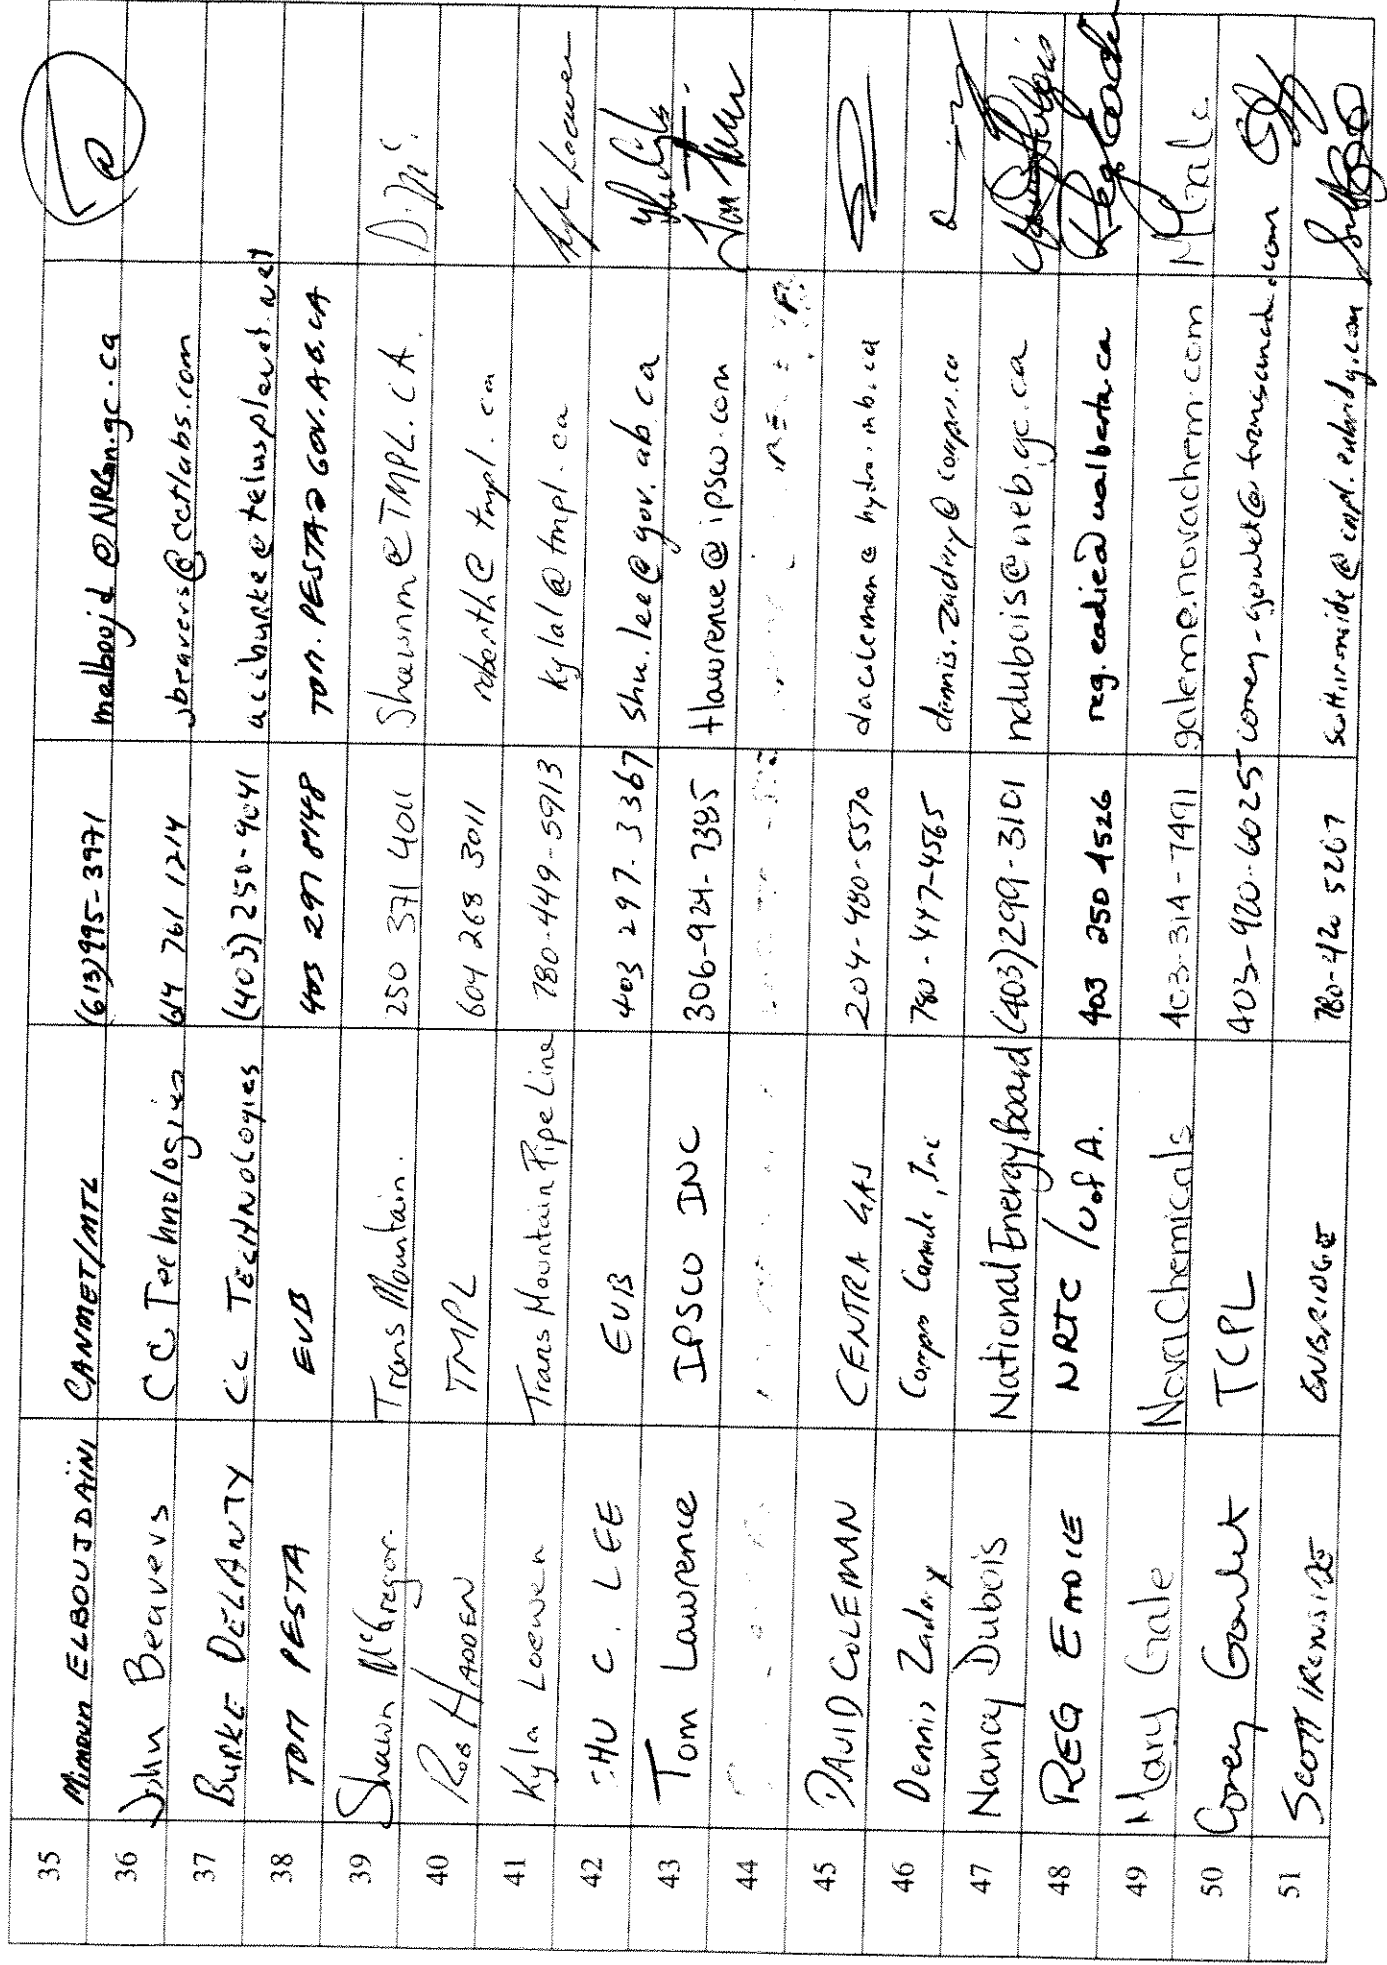 35 Mimoun ELBOUJDAINI CANMET/MTL (613) 995-3971
36 John Beavers CC Technologies 614 761 1214 jbeavers@cctlabs.com
37 BURKE DELANTY CC TECHNOLOGIES (403) 250-9041
38 TOM PESTA EUB 403 297 8148 TOM.PESTA@GOV.AB.CA
39 Shawn McGregor Trans Mountain. 250 371 4011 Shawnm@TMPL.CA.
40 ROB HADDEN TMPL 604 268 3011 roberth@tmpl.ca
41 Kyla Loewen Trans Mountain Pipe Line 780-449-5913 kylal@tmpl.ca
42 SHU C. LEE EUB 403 297-3367 shu.lee@gov.ab.ca
43 Tom Lawrence IPSCO INC 306-924-7385 tlawrence@ipsco.com
44
45 DAVID COLEMAN CENTRA GAS 204-480-5570
46 Dennis Zadery 780-447-4565
47 Nancy Dubois National Energy Board (403) 299-3101 ndubois@neb.gc.ca
48 REG EADIE NRTC / U of A. 403 250 1526 reg.eadie@ualberta.ca
49 Mary Gale Nova Chemicals 403-314-7491 galeme.novachem.com M Gale
50 Corey Goulet TCPL 403-920-6025 corey-goulet@transcanada.com
51 SCOTT IRONSIDE ENBRIDGE 780-420 5267 scott.ironside@cnpl.enbridge.com